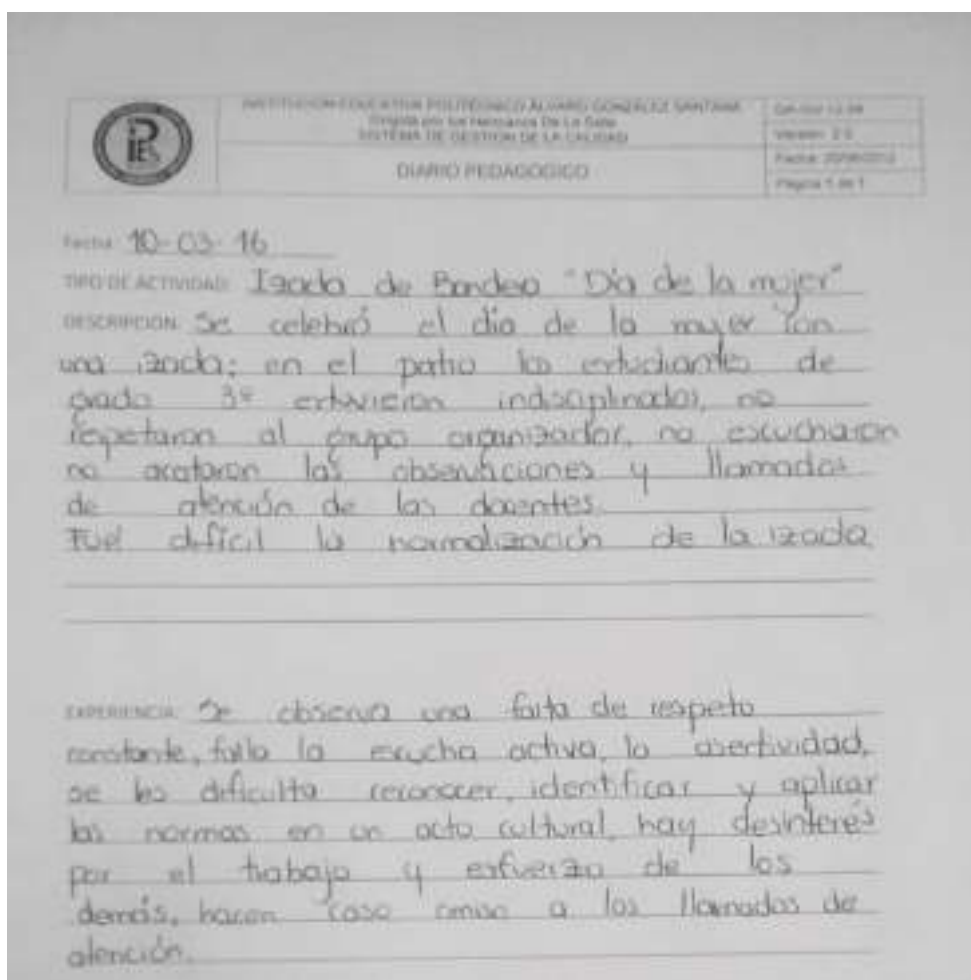 INSTITUCION EDUCATIVA POLITÉCNICO ÁLVARO GONZÁLEZ SANTANA
Dirigida por los Hermanos De La Salle
SISTEMA DE GESTIÓN DE LA CALIDAD
DIARIO PEDAGÓGICO
Versión: 2.0
Fecha: 20/06/2012
Página 1 de 1
Fecha: 10-03-16
TIPO DE ACTIVIDAD: Izada de Bandera "Día de la mujer"
DESCRIPCION: Se celebró el día de la mujer con
una izada; en el patio los estudiantes de
grado 3º estuvieron indisciplinados, no
respetaron al grupo organizador, no escucharon
no acataron las observaciones y llamados
de atención de los docentes.
Fue difícil la normalización de la izada.
EXPERIENCIA: Se observa una falta de respeto
constante, falla la escucha activa, la asertividad,
se les dificulta reconocer, identificar y aplicar
las normas en un acto cultural, hay desinterés
por el trabajo y esfuerzo de los
demás, hacen caso omiso a los llamados de
atención.